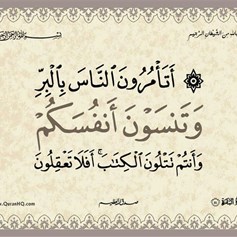 بالله من الشيطان الرجيم
بسم الله الرحمن الرحيم
أَتَأْمُرُونَ ٱلنَّاسَ بِٱلْبِرِّ
وَتَنسَوْنَ أَنفُسَكُمْ
وَأَنتُمْ تَتْلُونَ ٱلْكِتَٰبَ ۚ أَفَلَا تَعْقِلُونَ
www.QuranHQ.com
صدق الله العظيم